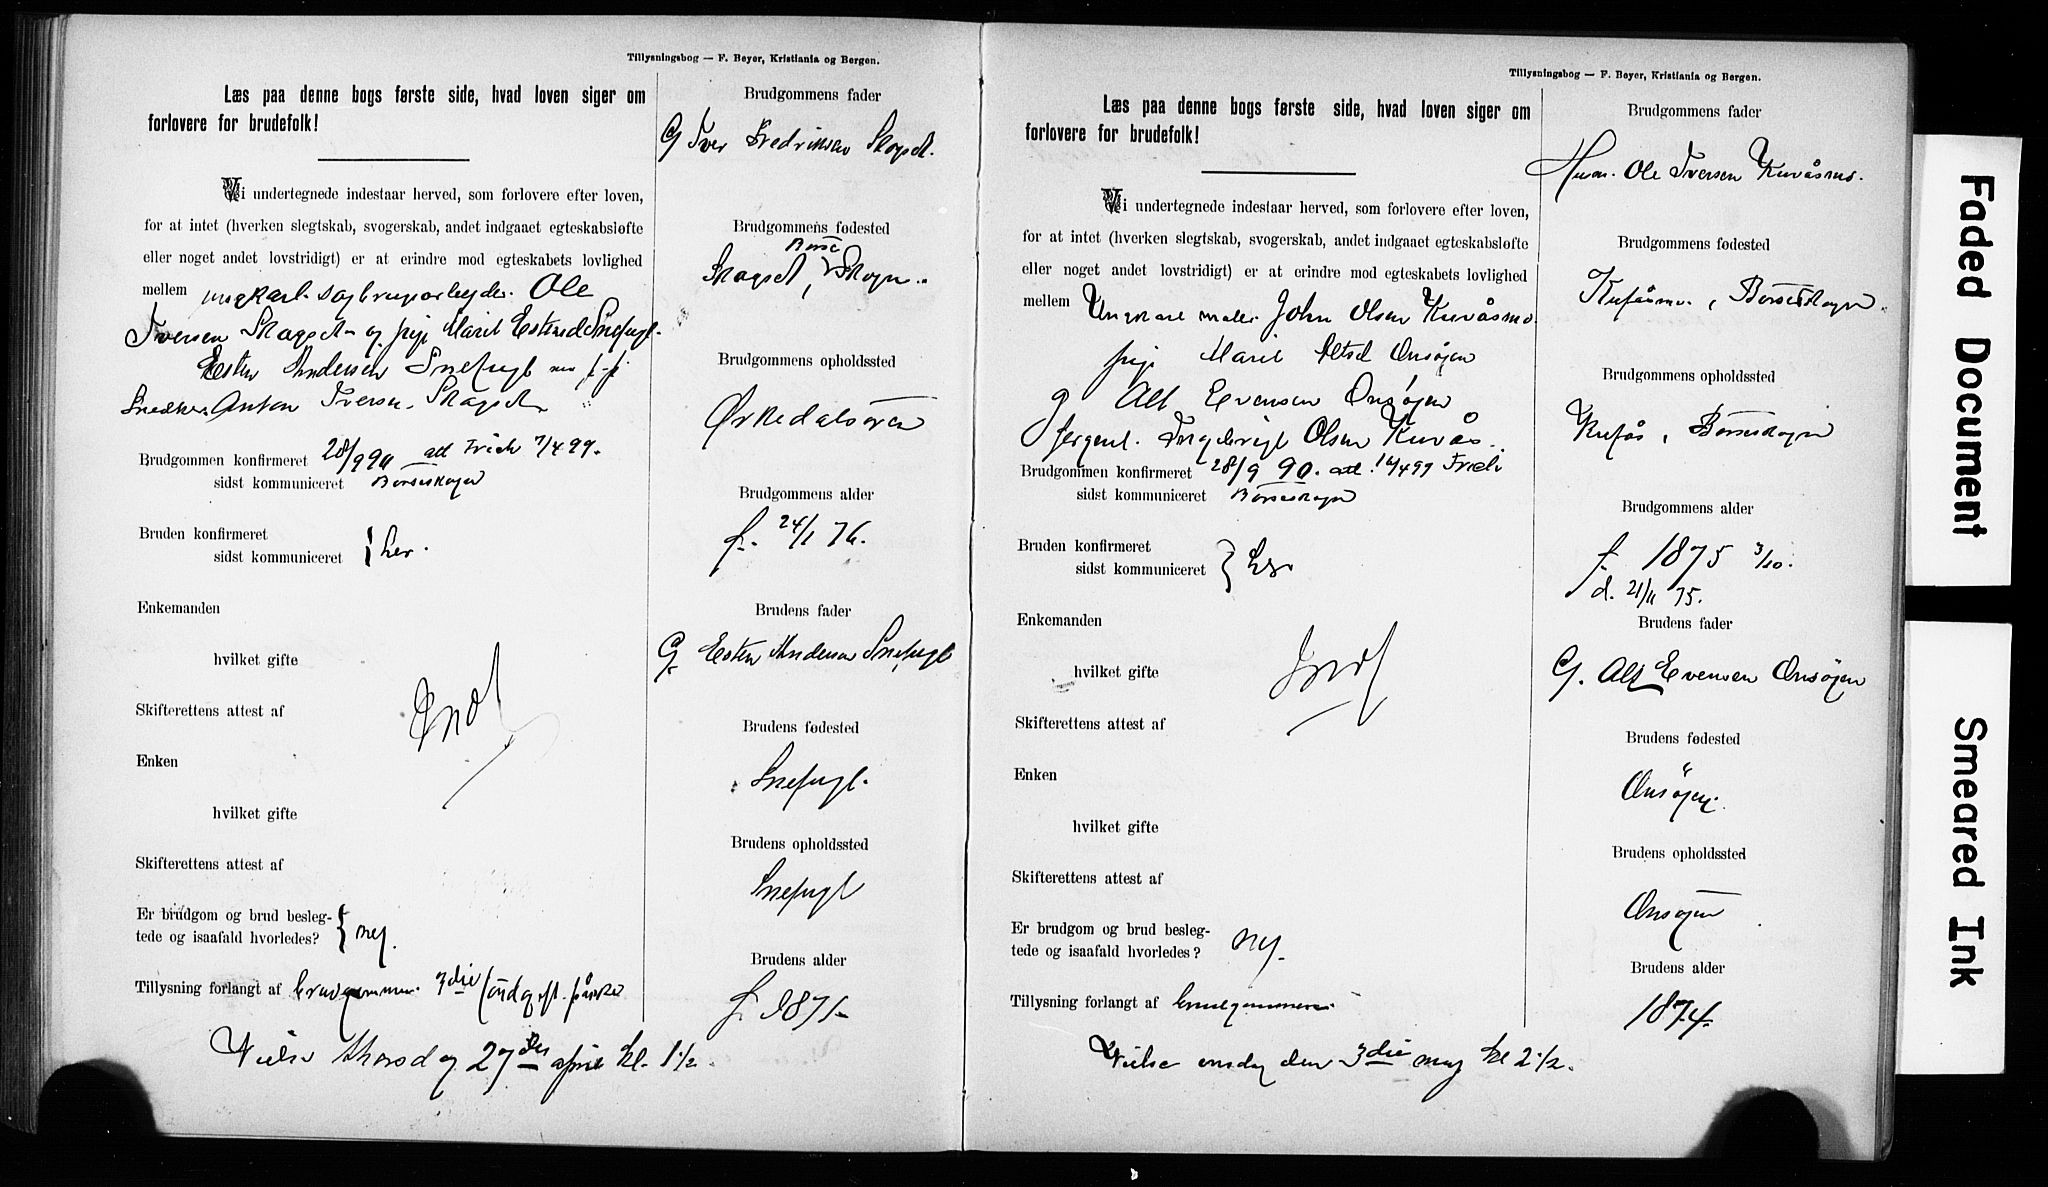 Tillysningsbog — F. Beyer, Kristiania og Bergen.
Læs paa denne bogs første side, hvad loven siger om
forlovere for brudefolk!
Vi undertegnede indestaar herved, som forlovere efter loven,
for at intet (hverken slegtskab, svogerskab, andet indgaaet egteskabsløfte
eller noget andet lovstridigt) er at erindre mod egteskabets lovlighed
mellem ungkarl. sagbrugsarbeyder. Ole
Iversen Skagset og pige Marit Estensd Snefugl.
Esten Andersen Snefugl
Snedker Anton Iversen Skagset
Brudgommen konfirmeret 28/9 90 att Frich 7/4 99.
sidst kommuniceret Børseskogn
Bruden konfirmeret
sidst kommuniceret } her.
Enkemanden
hvilket gifte
Skifterettens attest af
Indf
Enken
hvilket gifte
Skifterettens attest af
Er brudgom og brud besleg-
tede og isaafald hvorledes? } nej.
Tillysning forlangt af brudgommen. 3die søndg eft. påske
Vielse thorsdag 27de april kl. 1 1/2.
Brudgommens fader
G Iver Fredriksen Skagset.
Brudgommens fødested
Skagset, Børseskogn.
Brudgommens opholdssted
Ørkedalsøren
Brudgommens alder
f. 24/1 76.
Brudens fader
G. Esten Andersen Snefugl
Brudens fødested
Snefugl.
Brudens opholdssted
Snefugl
Brudens alder
f. 1871.
Tillysningsbog — F. Beyer, Kristiania og Bergen.
Læs paa denne bogs første side, hvad loven siger om
forlovere for brudefolk!
Vi undertegnede indestaar herved, som forlovere efter loven,
for at intet (hverken slegtskab, svogerskab, andet indgaaet egteskabsløfte
eller noget andet lovstridigt) er at erindre mod egteskabets lovlighed
mellem Ungkarl maler John Olsen Kuvåsmo.
pige Marit Alfsd Onsøjen
g Alf Evensen Onsøjen
sergent. Ingebrigt Olsen Kuvås.
Brudgommen konfirmeret 28/9 90. att. 14/4 99 Frich
sidst kommuniceret Børseskogn
Bruden konfirmeret
sidst kommuniceret } her
Enkemanden
hvilket gifte
Skifterettens attest af
Indf
Enken
hvilket gifte
Skifterettens attest af
Er brudgom og brud besleg-
tede og isaafald hvorledes? nej.
Tillysning forlangt af brudgommen
Vielse onsdag den 3die maj kl 2 1/2.
Brudgommens fader
Husm. Ole Iversen Kuvåsmo.
Brudgommens fødested
Kufåsmo, Børseskogn.
Brudgommens opholdssted
Kufås, Børseskogn
Brudgommens alder
f. 1875 3/10.
d. 21/11 75.
Brudens fader
G. Alf Evensen Onsøjen
Brudens fødested
Onsøjen.
Brudens opholdssted
Onsøjen
Brudens alder
1874.
Faded Document
Smeared Ink